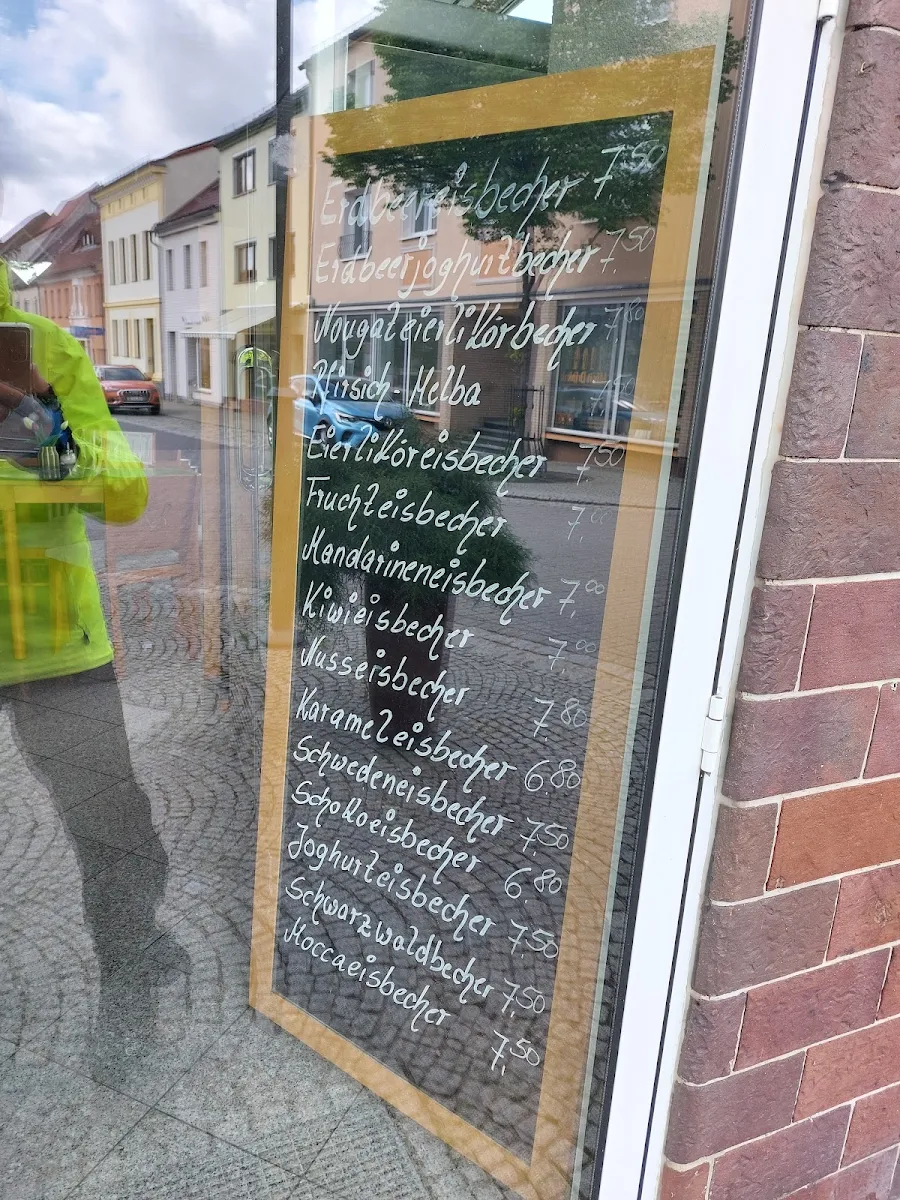 Erdbeereisbecher 7,50
Erdbeerjoghurtbecher 7,50
Nougateierlikörbecher 7,80
Pfirsich-Melba
Eierliköreisbecher 7,50
Fruchteisbecher 7,00
Mandarineneisbecher 7,00
Kiwieisbecher 7,00
Nusseisbecher 7,80
Karameleisbecher 6,80
Schwedeneisbecher 7,50
Schokoeisbecher 6,80
Joghurteisbecher 7,50
Schwarzwaldbecher 7,50
Moccaeisbecher 7,50